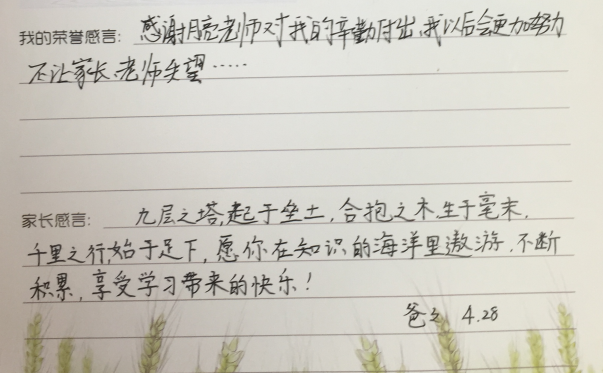 我的荣誉感言：感谢月亮老师对我的辛勤付出，我以后会更加努力
不让家长、老师失望……
家长感言：九层之塔，起于垒土，合抱之木，生于毫末，
千里之行，始于足下，愿你在知识的海洋里遨游，不断
积累，享受学习带来的快乐！
爸爸 4.28